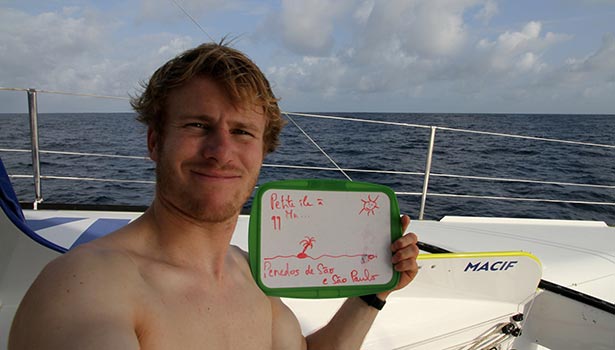 Petite île =
Penedos de São
e São Paulo
MACIF